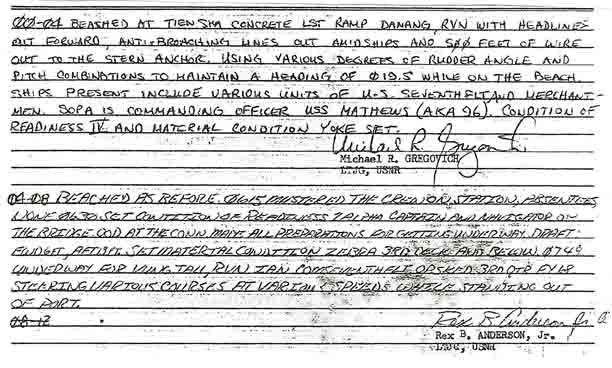 00-04 BEACHED AT TIEN SHA CONCRETE LST RAMP DANANG, RVN WITH HEADLINES
OUT FORWARD, ANTI-BROACHING LINES OUT AMIDSHIPS AND 500 FEET OF WIRE
OUT TO THE STERN ANCHOR. USING VARIOUS DEGREES OF RUDDER ANGLE AND
PITCH COMBINATIONS TO MAINTAIN A HEADING OF 019.5 WHILE ON THE BEACH.
SHIPS PRESENT INCLUDE VARIOUS UNITS OF U.S. SEVENTHFLT AND MERCHANT-
MEN. SOPA IS COMMANDING OFFICER USS MATHEWS (AKA 96). CONDITION OF
READINESS IV AND MATERIAL CONDITION YOKE SET.
Michael R. GREGOVICH
LTJG, USNR
04-08 BEACHED AS BEFORE. 0615 MUSTERED THE CREW ON STATION, ABSENTEES
NONE. 0630 SET CONDITION OF READINESS I ALPHA CAPTAIN AND NAVIGATOR ON
THE BRIDGE OOD AT THE CONN. MADE ALL PREPARATIONS FOR GETTING UNDERWAY. DRAFT:
FWD 6FT, AFT 13FT. SET MATERIAL CONDITION ZEBRA 3RD DECK AND BELOW. 0749
UNDERWAY FOR VUNG TAU, RVN IAW COMSEVENTHFLT OPSKED 3RD QTR FY68
STEERING VARIOUS COURSES AT VARIOUS SPEEDS WHILE STANDING OUT
OF PORT.
Rex B. Anderson Jr.
Rex B. ANDERSON, Jr.
LTJG, USNR
08-12